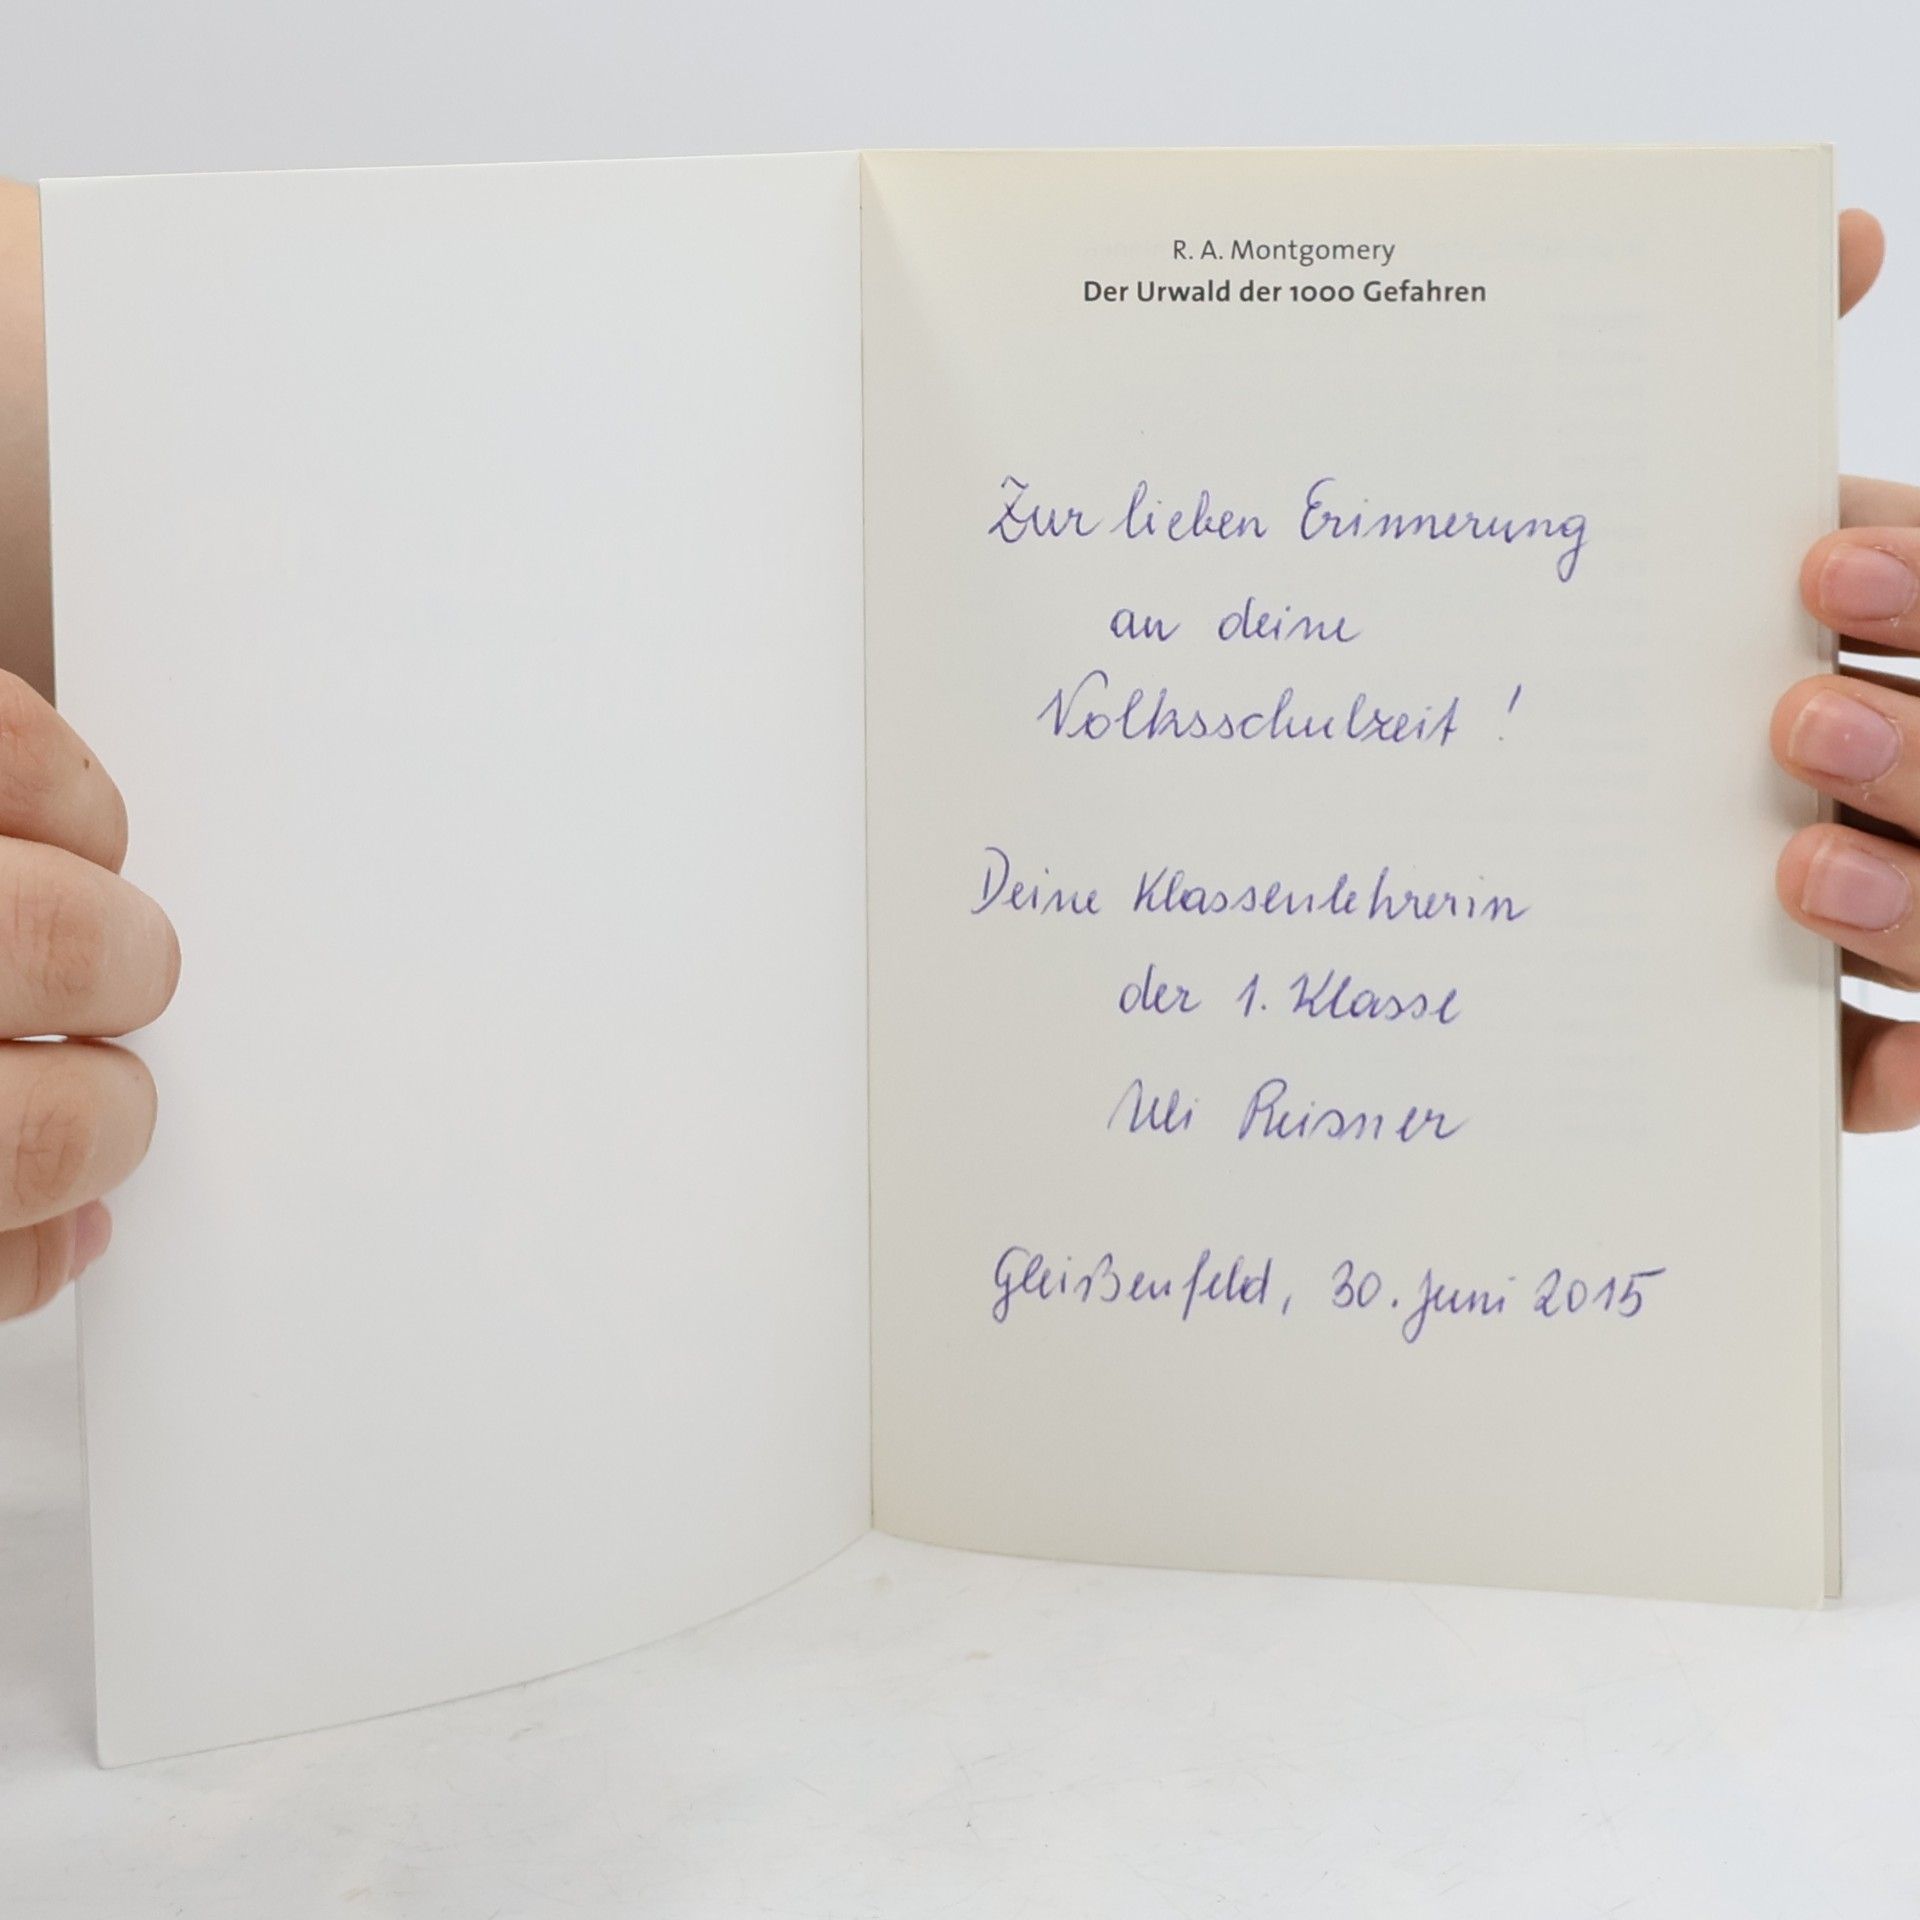 R. A. Montgomery
Der Urwald der 1000 Gefahren
Zur lieben Erinnerung
an deine
Volksschulzeit !
Deine Klassenlehrerin
der 1. Klasse
Uli Reisner
Gleißenfeld, 30. Juni 2015